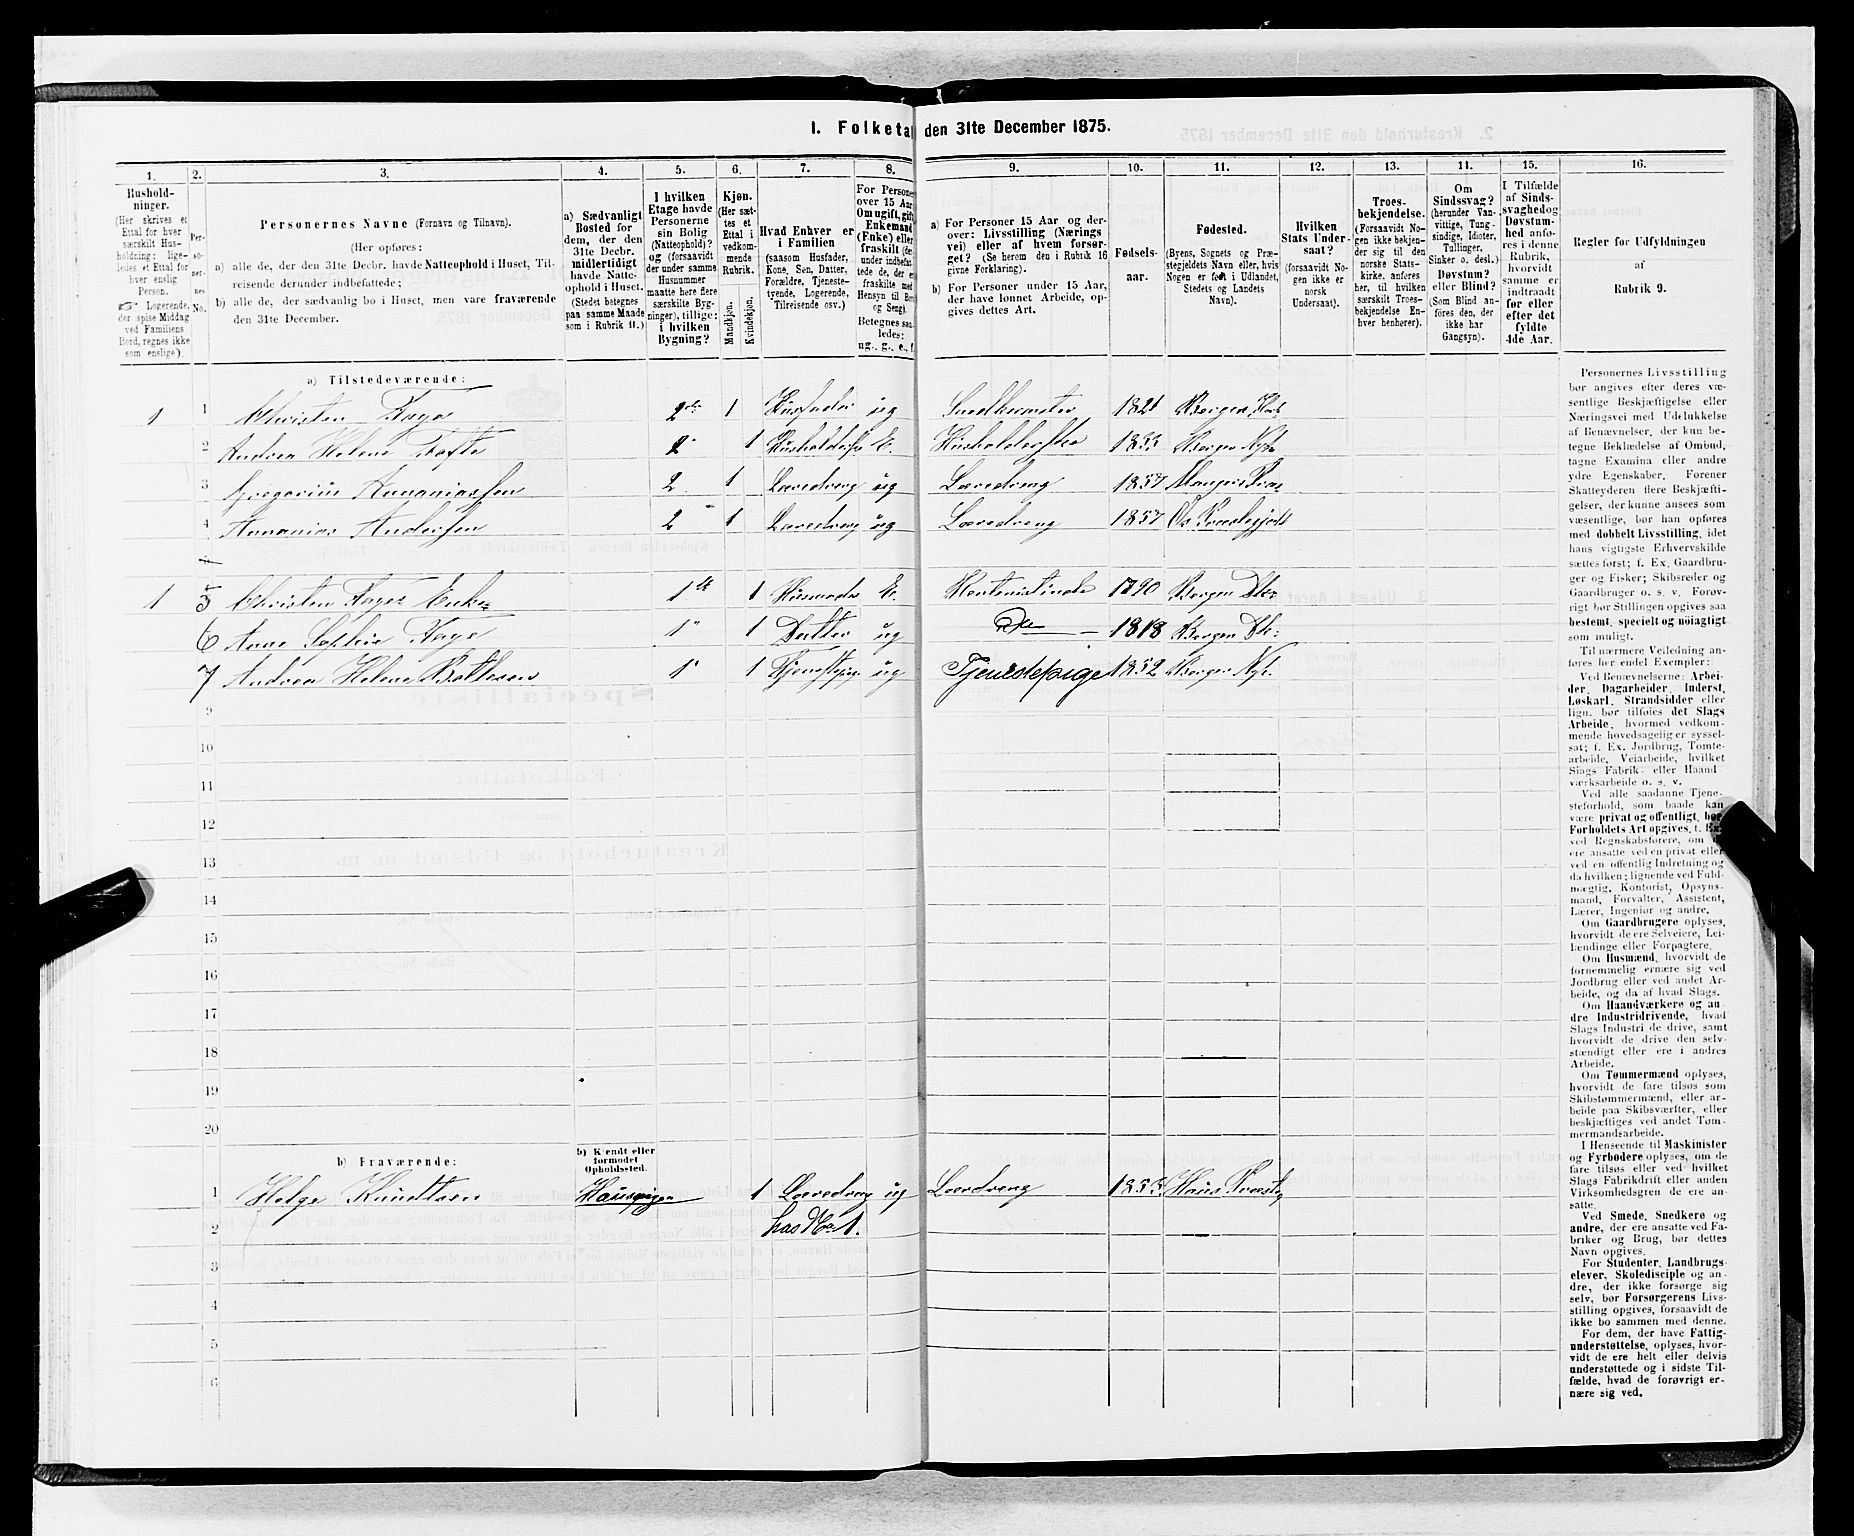 1. Folketal den 31te December 1875.
1. 2. 3. 4. 5. 6. 7. 8. 9. 10. 11. 12. 13. 14. 15. 16.
Hushold-
ninger.
(Her skrives et
Ettal for hver
særskilt Hus-
holdning; lige-
ledes et Ettal for
hver enslig
Person.
☞ Logerende,
der spise Middag
ved Familiens
Bord, regnes ikke
som enslige).
Per-
so-
ner-
nes
No.
Personernes Navne (Fornavn og Tilnavn).
(Her opføres:
a) alle de, der den 31te Decbr. havde Natteophold i Huset, Til-
reisende derunder indbefattede;
b) alle de, der sædvanlig bo i Huset, men vare fraværende
den 31te December.
a) Sædvanligt
Bosted for
dem, der den
31te Decbr.
midlertidigt
havde Natte-
ophold i Huset.
(Stedet betegnes
paa samme Maade
som i Rubrik 11.)
I hvilken
Etage havde
Personerne
sin Bolig
(Natteophold)?
og (forsaavidt
der under samme
Husnummer
maatte høre flere
særskilte Byg-
ninger), tillige:
i hvilken
Bygning?
Kjøn.
(Her sæt-
tes et
Ettal i
vedkom-
mende
Rubrik.
Mandkjøn.
Kvindekjøn.
Hvad Enhver er
i Familien
(saasom Husfader,
Kone, Søn, Datter,
Forældre, Tjeneste-
tyende, Logerende,
Tilreisende osv.)
For Personer
over 15 Aar
Om ugift, gift
Enkemand
(Enke) eller
fraskilt
Betegnes saa-
ledes:
ug., g., e., f.
a) For Personer 15 Aar og der-
over: Livsstilling (Nærings
vei) eller af hvem forsør-
get? (Se herom den i Rubrik 16
givne Forklaring).
b) For Personer under 15 Aar,
der have lønnet Arbeide, op-
gives dettes Art.
Fødsels-
aar.
Fødested.
(Byens, Sognets og Præ-
stegjeldets Navn eller, hvis
Nogen er født i Udlandet,
Stedets og Landets
Navn).
Hvilken
Stats Under-
saat?
(forsaavidt No-
gen ikke er
norsk
Undersaat).
Troes-
bekjendelse.
(Forsaavidt No-
gen ikke bekjen-
der sig til den
norske Stats-
kirke, anføres
her, til hvilken
særskilt Troes-
bekjendelse En-
hver henhører).
Om
Sindssvag?
(herunder Van-
vittige, Tung-
sindige, Idioter,
Tullinger,
Sinker o. desl.)
Døvstum?
eller Blind?
(Som Blind an-
føres den, der
ikke har
Gangsyn).
I Tilfælde
af Sinds-
svaghed og
Døvstum-
hed anfø-
res i denne
Rubrik,
hvorvidt
samme er
indtraadt
før eller
efter det
fyldte
4de Aar.
Regler for Udfyldningen
af
Rubrik 9.
a) Tilstedeværende:
1 1 Christen Faye 2den 1 Husfader ug Snedkermester 1821 Bergen
2 Andrea Helene Tofte 2 1 Husholderske E. Husholderske 1833 Bergen Nyk.
3 Gregorius Annaniassen 2 1 Læredreng ug Læredreng 1857 Manger
4 Annanias Andersen 2 " 1 Læredreng ug Læredreng 1857 Os
1 5 Christen Fayes Enke 1ste 1 Husmoder E. Rentenistinde 1790 Bergen Dk.
6 Anne Sophie Faye 1" 1 Datter ug Do 1818 Bergen Dk.
7 Andrea Helene 1" 1 Tjenestepige ug Tjenestepige 1852 Bergen Nyk.
9
10
11
12
13
14
15
16
17
18
19
20
b) Fraværende:
b) Kjendt eller
formodet
Opholdssted.
1 Helge Knudtsen 1 Læredreng ug Læredreng 1855 Haus
2 hos No 1.
3
4
5
6
Personernes Livsstilling
bør angives efter deres væ-
sentlige Beskjæftigelse eller
Næringsvei med Udelukkelse
af Benævnelser, der kun be-
tegne Beklædelse af Ombud,
tagne Examina eller andre
ydre Egenskaber. Forener
Skatteyderen flere Beskjæfti-
gelser, der kunne ansees som
væsentlige, bør han opføres
med dobbelt Livsstilling, idet
hans vigtigste Erhvervskilde
sættes først; f. Ex. Gaardbru-
ger og Fisker; Skibsreder og
Gaardbruger o. s. v. Forøv-
rigt bør Stillingen opgives saa
bestemt, specielt og nøiagtigt
som muligt.
Til nærmere Veiledning an-
føres her endel Exempler:
Ved Benævnelserne: Arbei-
der, Dagarbeider, Inderst,
Løskarl, Strandsidder eller
lign. bør tilføies det Slags
Arbeide, hvormed vedkom-
mende hovedsagelig er syssel-
sat; f. Ex. Jordbrug, Tomte-
arbeide, Veiarbeide, hvilket
Slags Fabrik- eller Haand
værksarbeide o. s. v.
Ved alle saadanne Tjene-
steforhold, som baade kan
være privat og offentligt, bør
Forholdets Art opgives, t. Ex.
ved Regnskabsførere, om
ere ansatte ved en privat eller
ved en offentlig Indretning og
da hvilken; lignende ved Fuld-
mægtig, Kontorist, Opsyns-
mand, Forvalter, Assistent,
Lærer, Ingeniør og andre.
Om Gaardbrugere oplyses,
hvorvidt de ere Selveiere, Lei-
lændinge eller Forpagtere.
Om Husmænd, hvorvidt de
fornemmelig ernære sig ved
Jordbrug eller ved andet Ar-
beide, og da af hvad Slags.
Om Haandværkere og an-
dre Industridrivende, hvad
Slags Industri de drive, samt
hvorvidt de drive den selv-
stændigt eller ere i andres
Arbeide.
Om Tømmermænd oplyses,
hvorvidt de fare tilsøs som
Skibstømmermænd, eller ar-
beide paa Skibsværfter, eller
beskjæftiges ved andet Tøm-
mermandsarbeide.
I Henseende til Maskinister
og Fyrbødere oplyses, om de
fare tilsøs eller ved hvilket
Slags Fabrikdrift eller anden
Virksomhedsgren de ere an-
satte.
Ved Smede, Snedkere og
andre, der ere ansatte ved Fa-
briker og Brug, bør dettes
Navn opgives.
For Studenter, Landbrugs-
elever, Skoledisciple og an-
dre, der ikke forsørge sig
selv, bør Forsørgerens Livs-
stilling opgives, forsaavidt de
ikke bo sammen med denne.
For dem, der have Fattig-
understøttelse, oplyses, hvor-
vidt de ere helt eller delvis
understøttede og i sidste Til-
fælde, hvad de forøvrigt er-
nære sig ved.